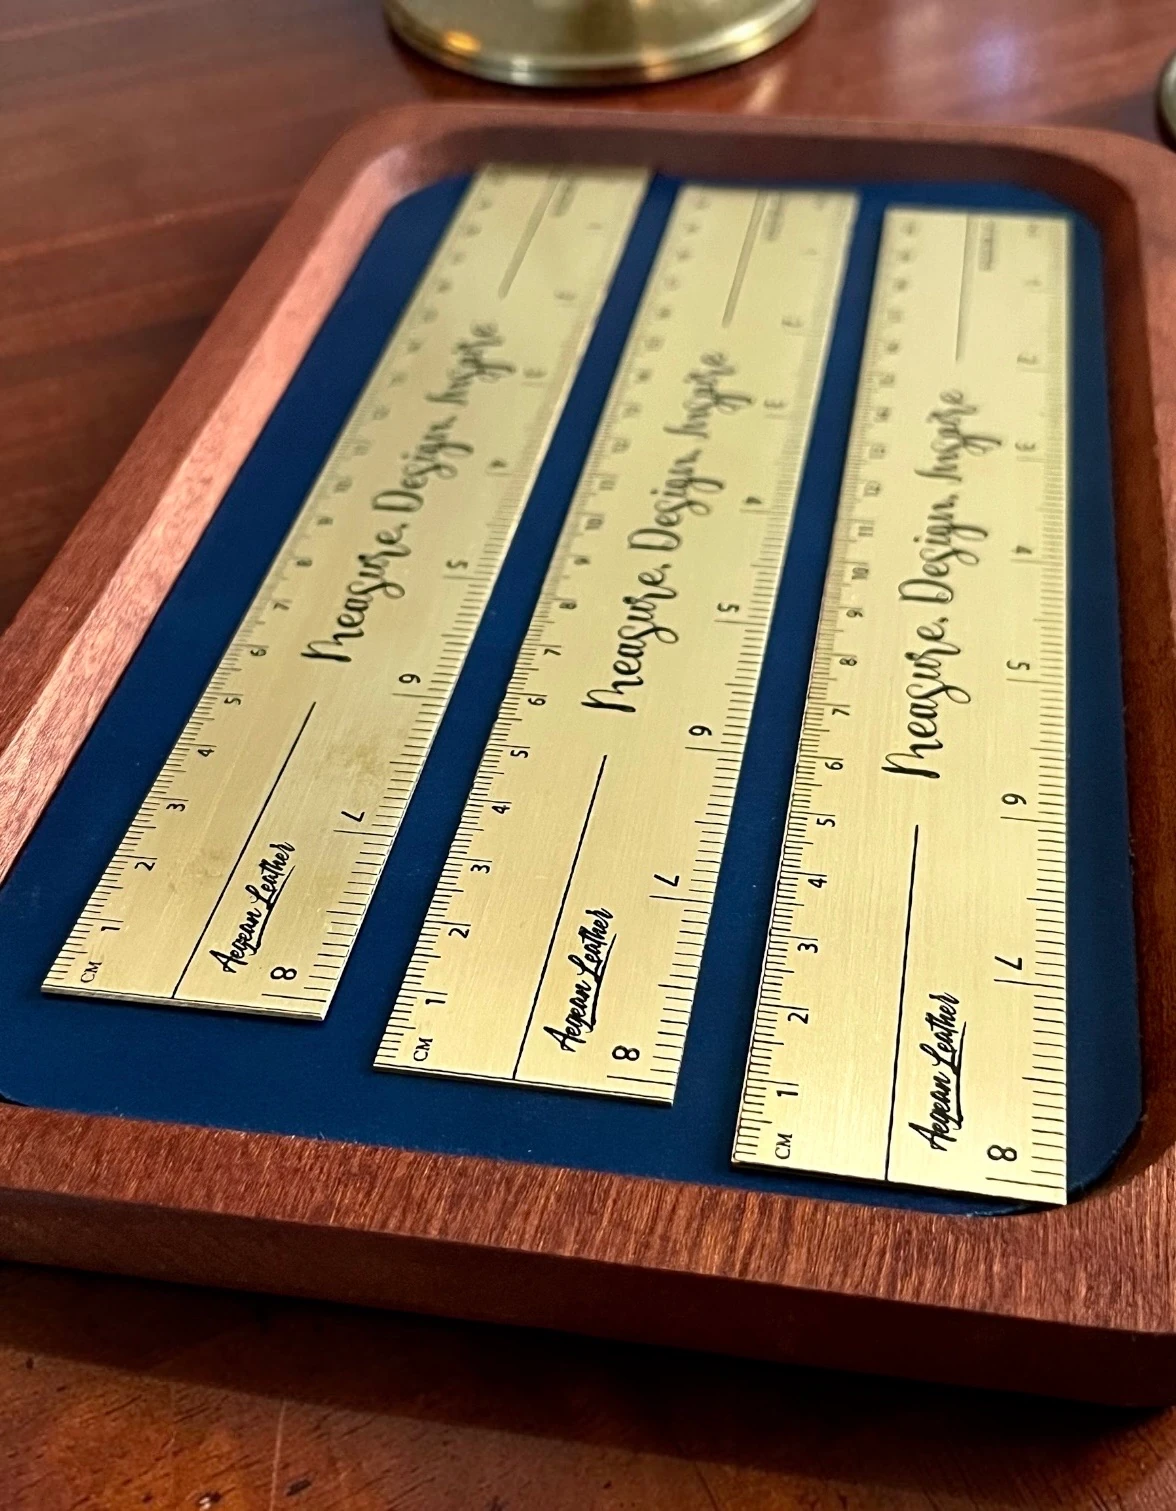 CM 1 2 3 4 5 6 7 8
Measure. Design. Inspire
Aegean Leather
3 4 5 6 7 8
CM 1 2 3 4 5 6 7 8 9 10 11 12
Measure. Design. Inspire
Aegean Leather
2 3 4 5 6 7 8
CM 1 2 3 4 5 6 7 8 9 10 11 12 13 14
Measure. Design. Inspire
Aegean Leather
1 2 3 4 5 6 7 8